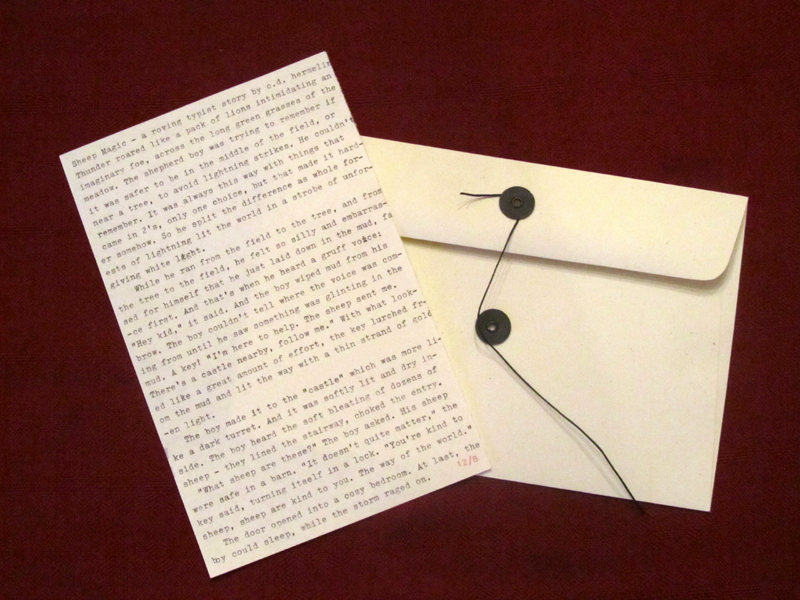 Sheep Magic - a roving typist story by c.d. hermelin
Thunder roared like a pack of lions intimidating an
imaginary foe, across the long green grasses of the
meadow. The shepherd boy was trying to remember if
it was safer to be in the middle of the field, or
near a tree, to avoid lightning strikes. He couldn't
remember. It was always this way with things that
came in 2's, only one choice, but that made it hard-
er somehow. So he split the difference as whole for-
ests of lightning lit the world in a strobe of unfor-
giving white light.
While he ran from the field to the tree, and from
the tree to the field, he felt so silly and embarras-
sed for himself that he just laid down in the mud, fa
-ce first. And that's when he heard a gruff voice:
"Hey kid," it said. And the boy wiped mud from his
brow. The boy couldn't tell where the voice was com-
ing from until he saw something was glinting in the
mud. A key! "I'm here to help. The sheep sent me.
There's a castle nearby, follow me." With what look-
ed like a great amount of effort, the key lurched fr-
om the mud and lit the way with a thin strand of gold
-en light.
The boy made it to the "castle" which was more li-
ke a dark turret. And it was softly lit and dry in-
side. The boy heard the soft bleating of dozens of
sheep - they lined the stairway, choked the entry.
"What sheep are these?" The boy asked. His sheep
were safe in a barn. "It doesn't quite matter," the
key said, turning itself in a lock. "You're kind to
sheep, sheep are kind to you. The way of the world."
The door opened into a cozy bedroom. At last, the
boy could sleep, while the storm raged on.
12/8